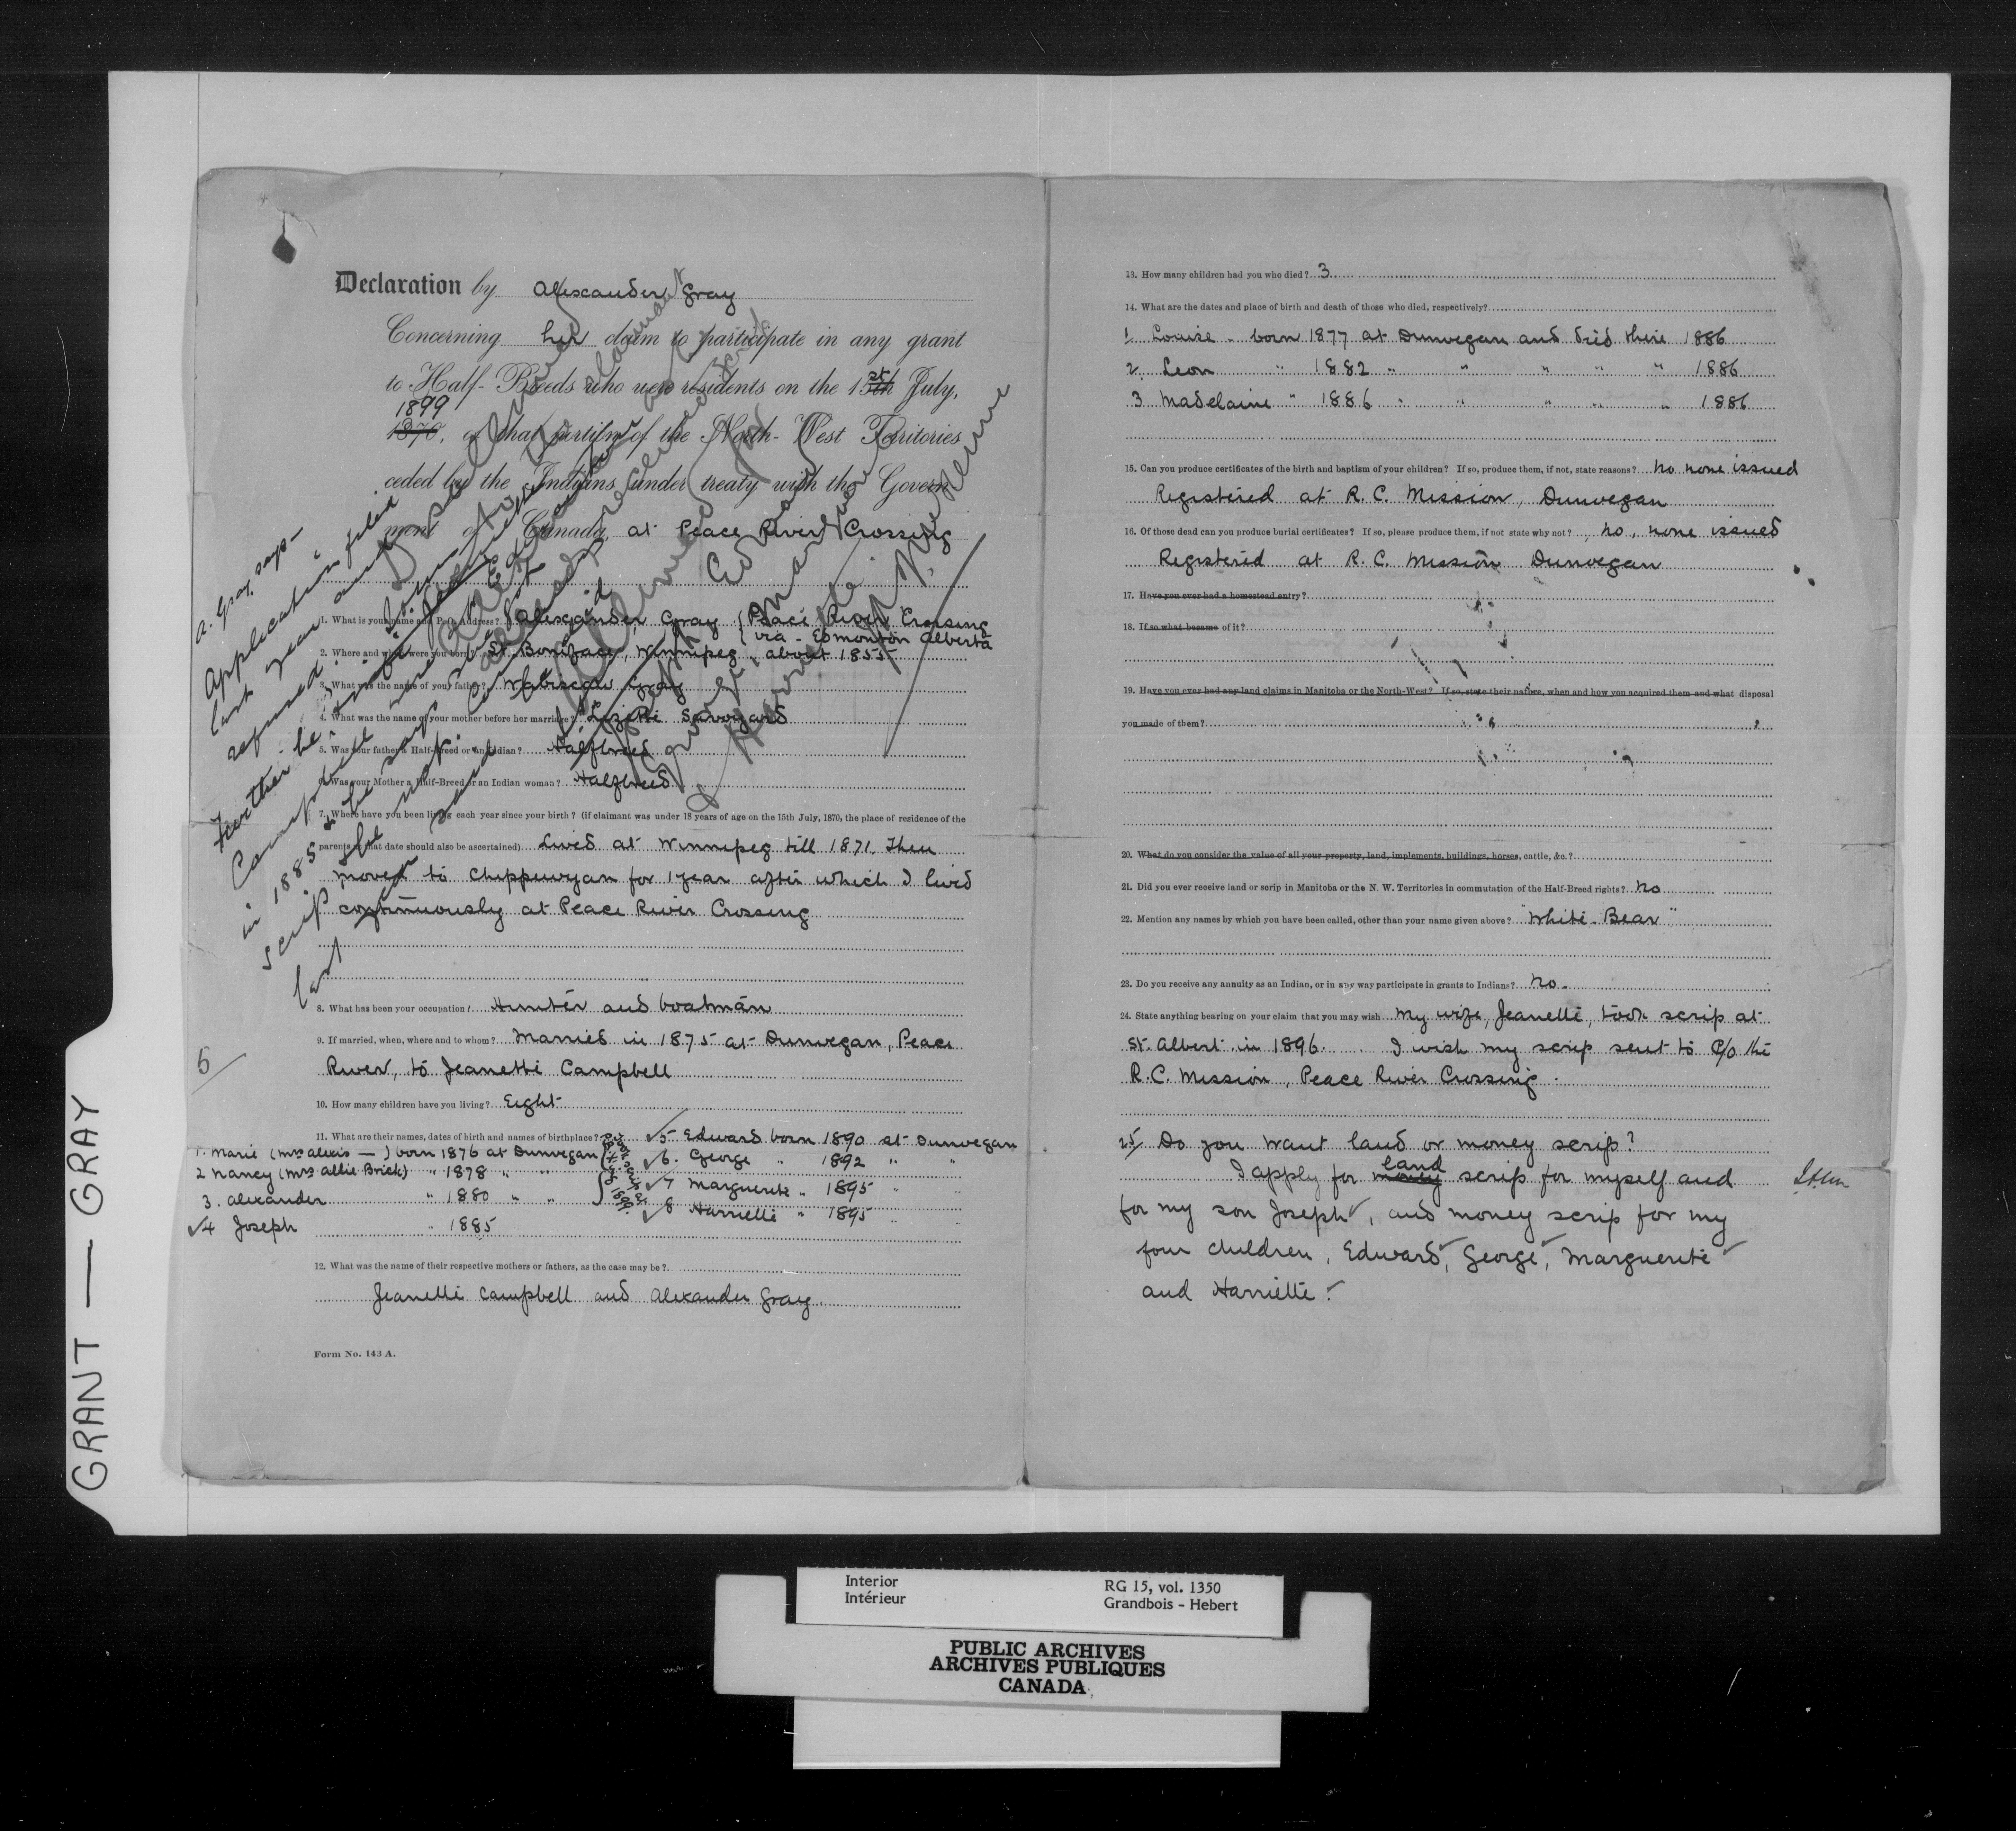 Declaration by Alexander Gray
Concerning his claim to participate in any grant
to Half-Breeds who were residents on the 15th st July,
1899
1870, of that portion of the North-West Territories
ceded by the Indians under treaty with the Govern-
ment of Canada, at Peace River Crossing
A. Gray says -
Application filed
last year and
refused.
Further he
Campbell
in 1885 & he says
scrip
last
1. What is your name and P. O. Address? Alexander Gray (Peace River Crossing
via - Edmonton Alberta
2. Where and when were you born? St. Boniface, Winnipeg, about 1855
3. What was the name of your father? Wabiscaw Gray
4. What was the name of your mother before her marriage? Lizette Savoyard
5. Was your father a Half-Breed or an Indian? Halfbreed
6. Was your Mother a Half-Breed or an Indian woman? Halfbreed
7. Where have you been living each year since your birth? (if claimant was under 18 years of age on the 15th July, 1870, the place of residence of the
parents at that date should also be ascertained) Lived at Winnipeg till 1871. Then
moved to Chippewyan for 1 year after which I lived
continuously at Peace River Crossing
8. What has been your occupation? Hunter and boatman
9. If married, when, where and to whom? Married in 1875 at Dunvegan, Peace
River, to Jeanette Campbell
5
10. How many children have you living? Eight
11. What are their names, dates of birth and names of birthplace?
1. Marie (Mrs Alexis — ) born 1876 at Dunvegan
2 Nancy (Mrs Allie Brick) " 1878 " "
3. Alexander " 1880 " "
4 Joseph " 1885
took scrip in 1899
5 Edward born 1890 at Dunvegan
6. George " 1892 " "
7 Marguerite " 1895 "
8 Harriette " 1895 "
12. What was the name of their respective mothers or fathers, as the case may be?
Jeanette Campbell and Alexander Gray.
Form No. 143 A.
13. How many children had you who died? 3
14. What are the dates and place of birth and death of those who died, respectively?
1. Louise - born 1877 at Dunvegan and died there 1886
2. Leon " 1882 " " " " " 1886
3 Madelaine " 1886 " " " " " 1886
15. Can you produce certificates of the birth and baptism of your children? If so, produce them, if not, state reasons? No none issued
Registered at R. C. Mission, Dunvegan
16. Of those dead can you produce burial certificates? If so, please produce them, if not state why not? No, none issued
Registered at R. C. Mission Dunvegan
17. Have you ever had a homestead entry?
18. If so what became of it?
19. Have you ever had any land claims in Manitoba or the North-West? If so, state their nature, when and how you acquired them and what disposal
you made of them?
20. What do you consider the value of all your property, land, implements, buildings, horses, cattle, &c.?
21. Did you ever receive land or scrip in Manitoba or the N. W. Territories in commutation of the Half-Breed rights? No
22. Mention any names by which you have been called, other than your name given above? "White-Bear"
23. Do you receive any annuity as an Indian, or in any way participate in grants to Indians? No.
24. State anything bearing on your claim that you may wish My wife, Jeanette, took scrip at
St. Albert in 1896. I wish my scrip sent to c/o the
R.C. Mission, Peace River Crossing.
25/ Do you want land or money scrip?
land
I apply for money scrip for myself and
for my son Joseph, and money scrip for my
four children, Edward, George, Marguerite
and Harriette.
GRANT — GRAY
Interior
Intérieur
RG 15, vol. 1350
Grandbois - Hebert
PUBLIC ARCHIVES
ARCHIVES PUBLIQUES
CANADA